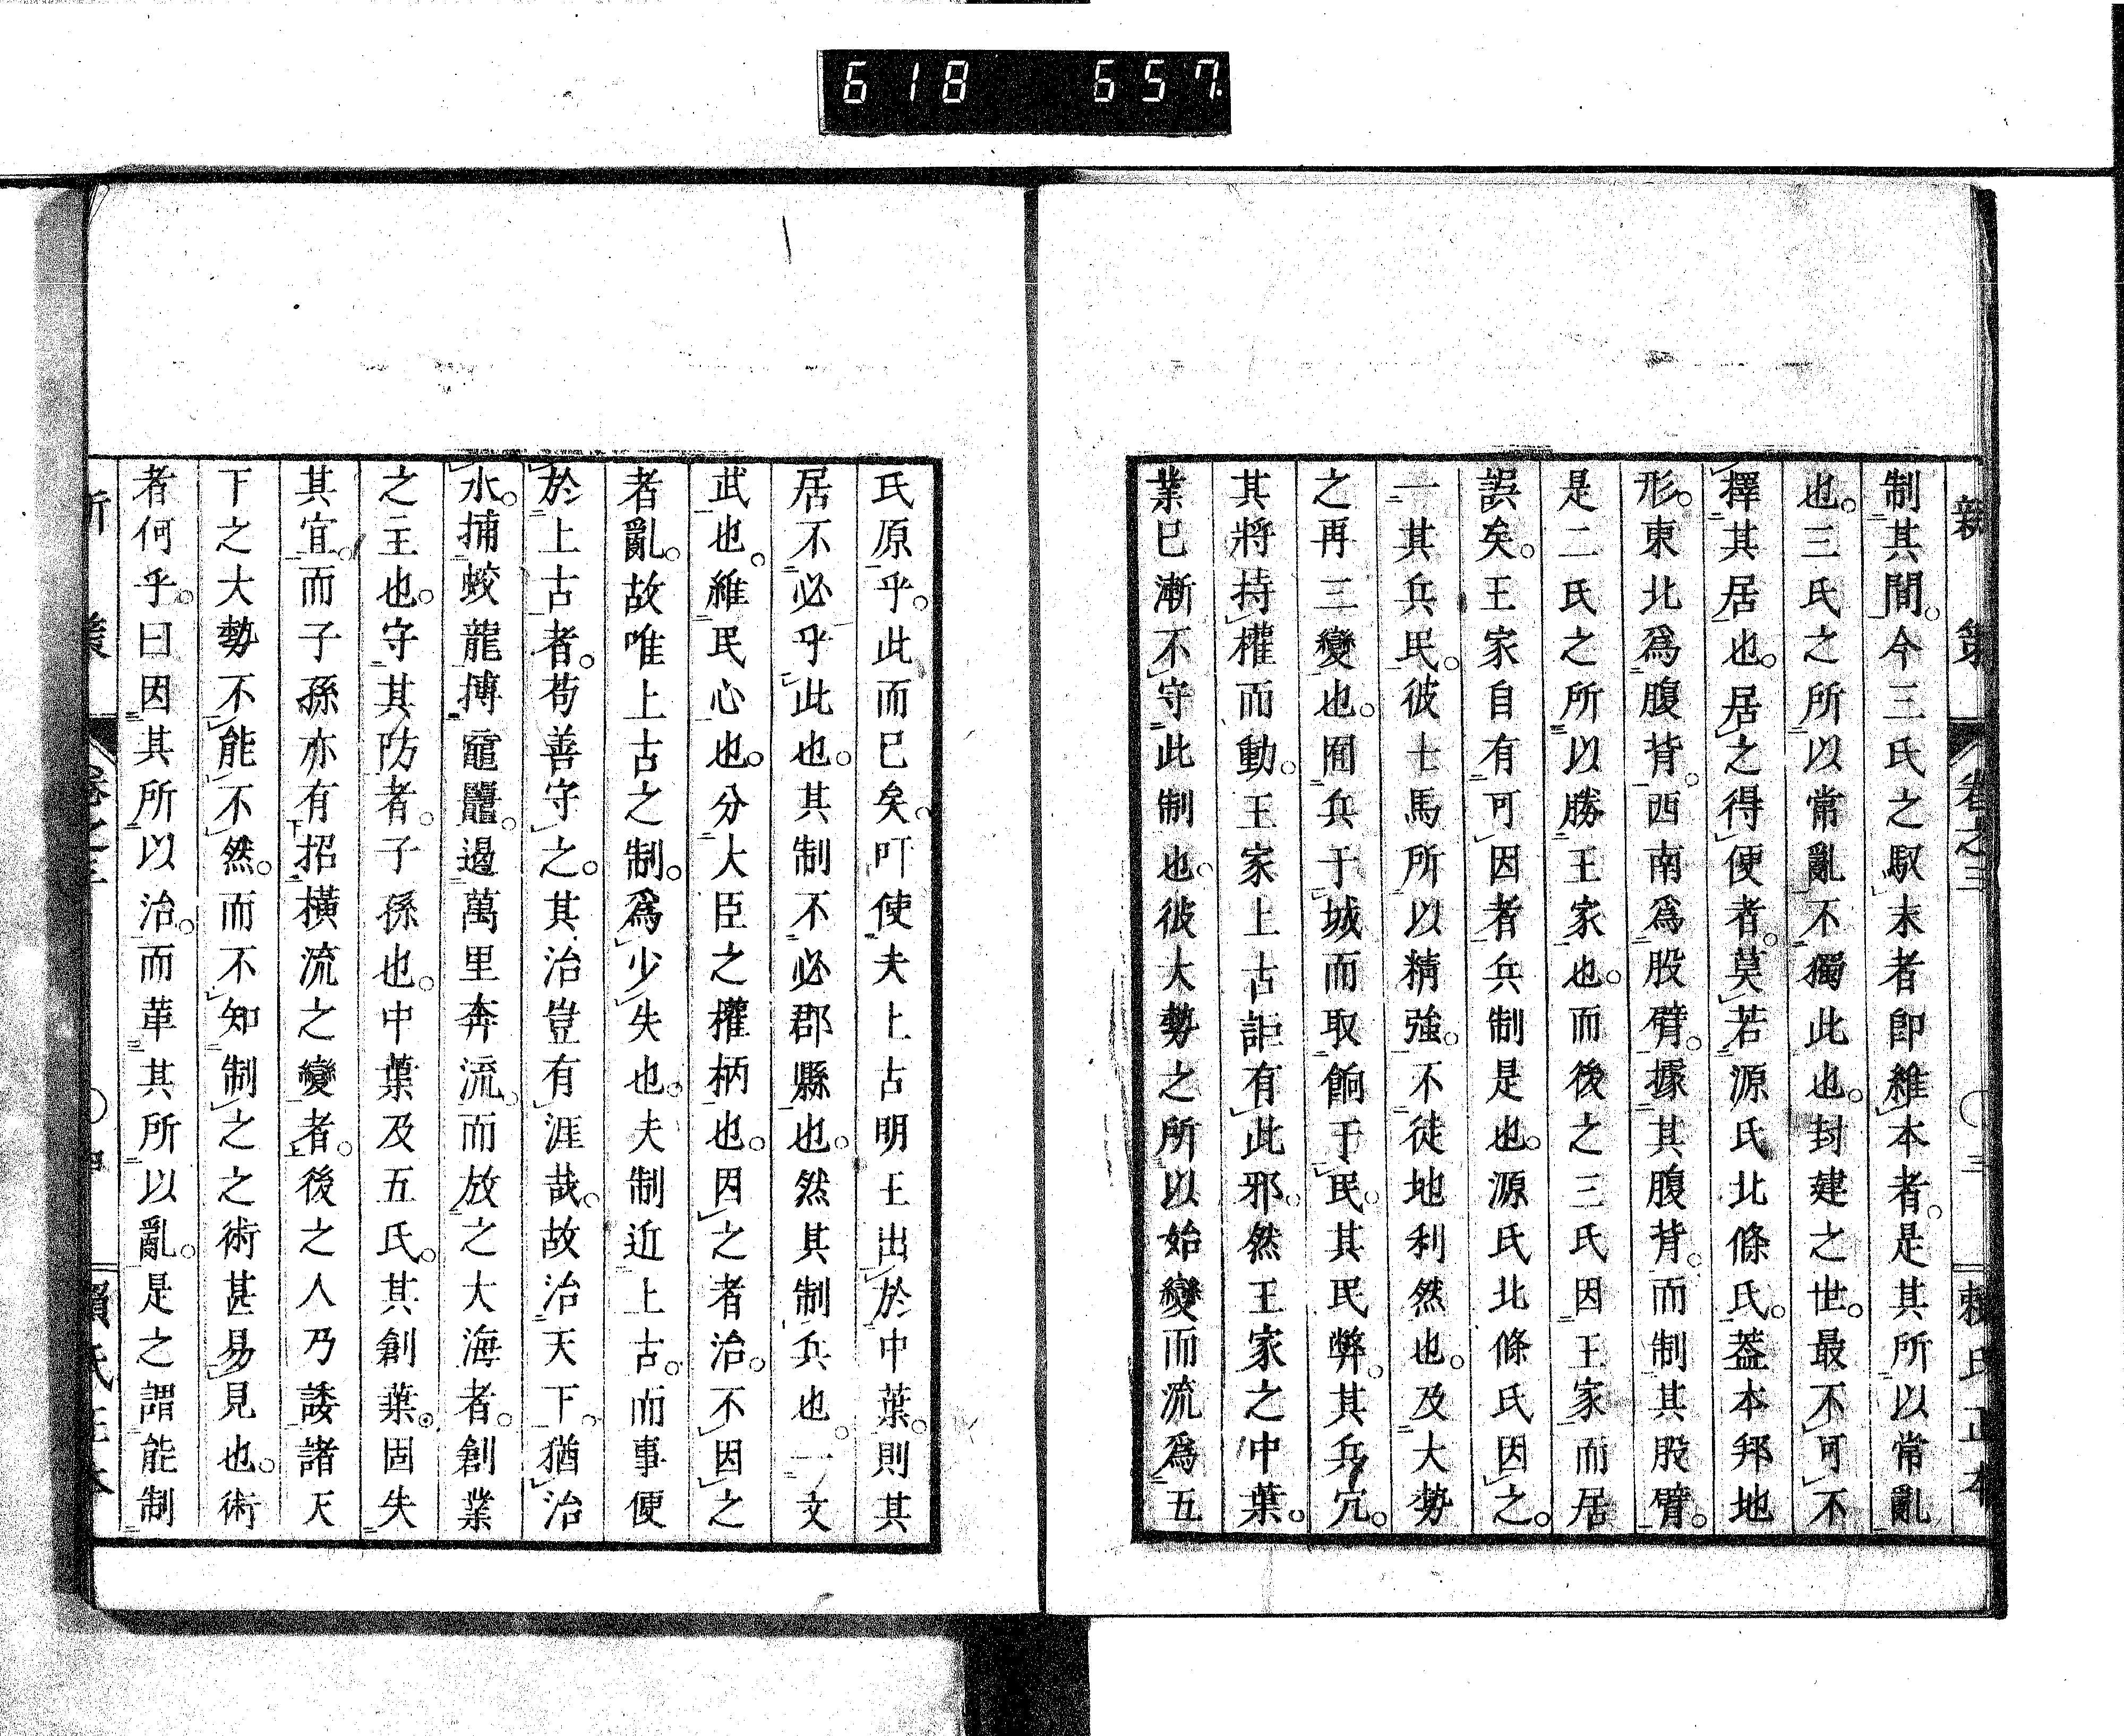 618 657
新策 卷之三 ○三 賴氏正本
制其間。今三氏之馭末者卽維本者。是其所以常亂
也。三氏之所以常亂不獨此也。封建之世。最不可不
擇其居也。居之得便者。莫若源氏北條氏。蓋本邦地
形。東北爲腹背。西南爲股臂。據其腹背。而制其股臂。
是二氏之所以勝王家也。而後之三氏因王家而居
誤矣。王家自有可因者兵制是也。源氏北條氏因之。
一其兵民。彼士馬所以精強。不徒地利然也。及大勢
之再三變也。囿兵于城而取餉于民。其民弊。其兵冗。
其將持權而動。王家上古詎有此邪。然王家之中葉。
業已漸不守此制也。彼大勢之所以始變而流爲五
氏原乎。此而已矣。吁使夫上古明王出於中葉。則其
居不必乎此也。其制不必郡縣也。然其制兵也。一文
武也。維民心也。分大臣之權柄也。因之者治。不因之
者亂。故唯上古之制。爲少失也。夫制近上古。而事便
於上古者。苟善守之。其治豈有涯哉。故治天下。猶治
水。捕蛟龍搏黿鼉。遏萬里奔流。而放之大海者。創業
之主也。守其防者。子孫也。中葉及五氏。其創葉。固失
其宜。而子孫亦有招橫流之變者。後之人乃諉諸天
下之大勢不能不然。而不知制之之術甚易見也。術
者何乎。曰因其所以治。而革其所以亂。是之謂能制